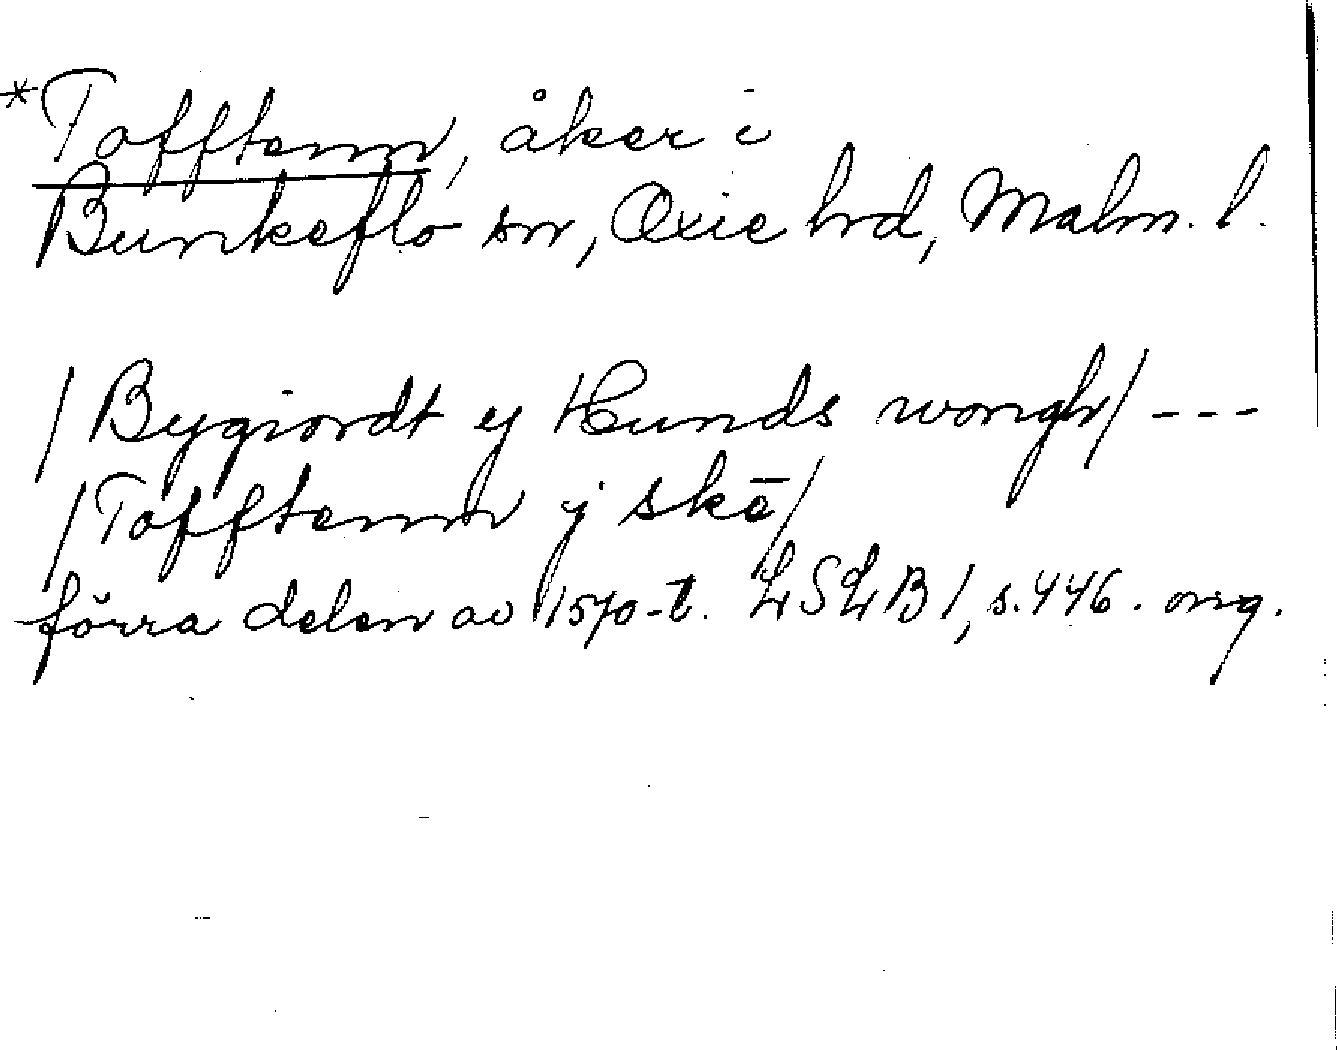 *Tofftenn, åker i
Bunkeflo sn, Oxie hrd, Malm. l.
/Bygiordt ej Hunds wongh/ ---
/Tofftenn j skē/
förra delen av 1570-t. LSLB 1, s. 446. orig.